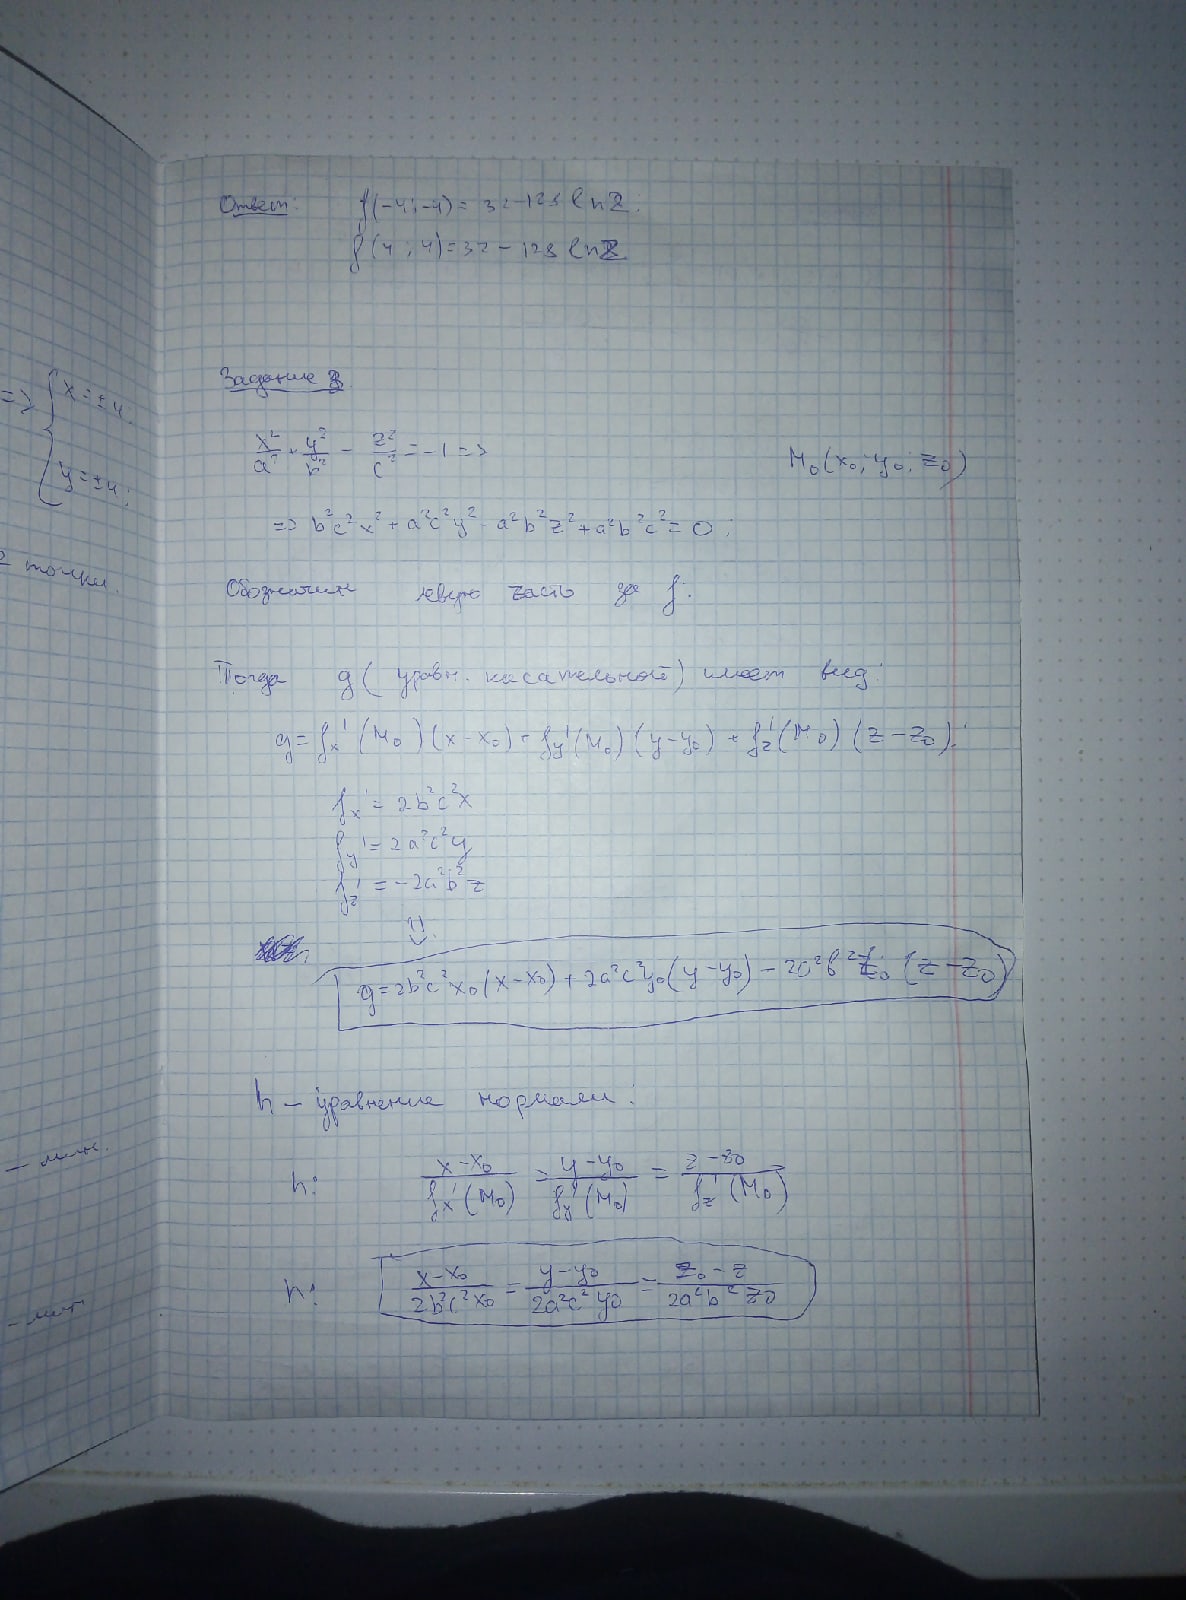 Ответ: f(-4;-4)=32-128 ln2;
f(4;4)=32-128 ln2
=> { x=±4;
y=±4;
2 точки.
Задание 3
x²/a² + y²/b² - z²/c² = -1 =>
M₀(x₀; y₀; z₀)
=> b²c²x² + a²c²y² - a²b²z² + a²b²c² = 0;
Обозначим левую часть за f.
Тогда g (уравн. касательной) имеет вид:
g = fₓ'(M₀)(x-x₀) + f_y'(M₀)(y-y₀) + f_z'(M₀)(z-z₀);
fₓ' = 2b²c²x
f_y' = 2a²c²y
f_z' = -2a²b²z
⇓
g = 2b²c²x₀(x-x₀) + 2a²c²y₀(y-y₀) - 2a²b²z₀(z-z₀)
n - уравнение нормали:
- мин.
n: (x-x₀)/fₓ'(M₀) = (y-y₀)/f_y'(M₀) = (z-z₀)/f_z'(M₀)
n: (x-x₀)/(2b²c²x₀) = (y-y₀)/(2a²c²y₀) = (z₀-z)/(2a²b²z₀)